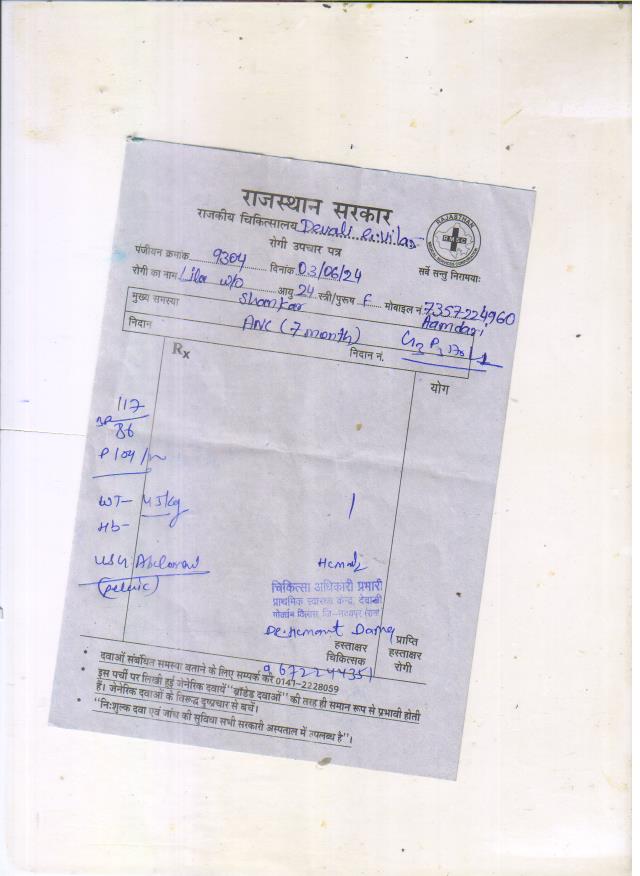 राजस्थान सरकार
राजकीय चिकित्सालय Devali
रोगी उपचार पत्र
RAJASTHAN
पंजीयन क्रमांक 9304 दिनांक 03/06/24
सर्वे सन्तु निरामयाः
रोगी का नाम Lila w/o आयु 24 स्त्री/पुरूष F मोबाइल नं. 7357224960
मुख्य समस्या Shankar
निदान ANC (7 month) निदान नं.
Rx
योग
BP 117
86
P 104/
WT- 45kg
Hb-
USG Abdomen
(pelvic)
चिकित्सा अधिकारी प्रभारी
प्राथमिक स्वास्थ्य केन्द्र, देवाली
Dr. Hemant
हस्ताक्षर
चिकित्सक
9672244351
प्राप्ति
हस्ताक्षर
रोगी
दवाओं संबंधित समस्या बताने के लिए सम्पर्क करें 0141-2228059
इस पर्ची पर लिखी हुई जेनेरिक दवायें "ब्रांडेड दवाओं" की तरह ही समान रूप से प्रभावी होती
हैं। जेनेरिक दवाओं के विरूद्ध दुष्प्रचार से बचें।
"निःशुल्क दवा एवं जांच की सुविधा सभी सरकारी अस्पताल में उपलब्ध है"।